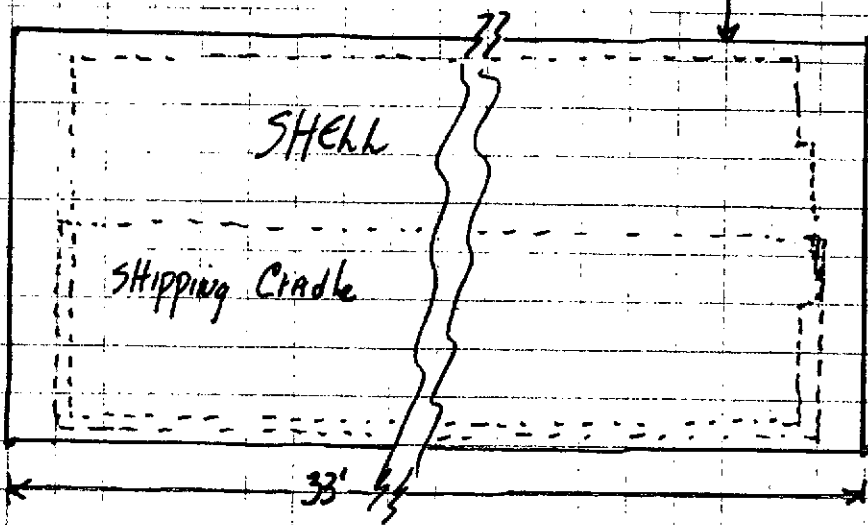 SHELL
SHipping CrAdle
33'